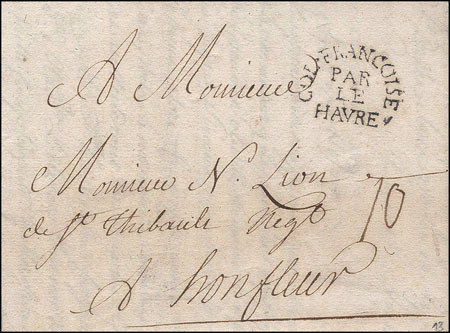 A Monsieur
COL. FRANCOISE
PAR
LE
HAVRE
Monsieur N. Lion
de St. Thibault Negt
10
A honfleur
13